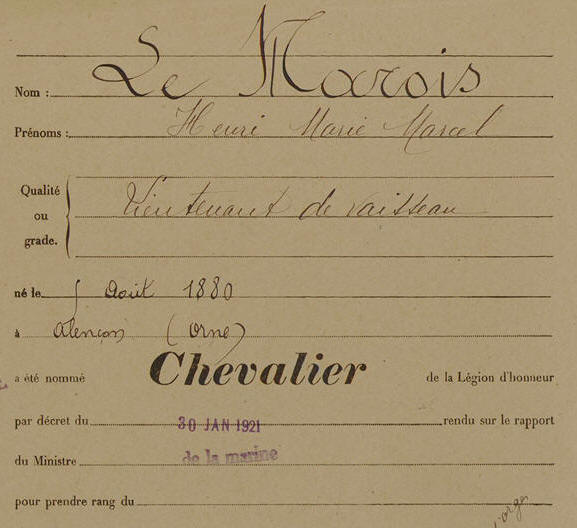 Nom : Le Marois
Prénoms : Henri Marie Marcel
Qualité
ou
grade.
Lieutenant de vaisseau
né le 5 août 1880
à alençon (orne)
a été nommé Chevalier de la Légion d'honneur
par décret du 30 JAN 1921 rendu sur le rapport
du Ministre de la marine
pour prendre rang du